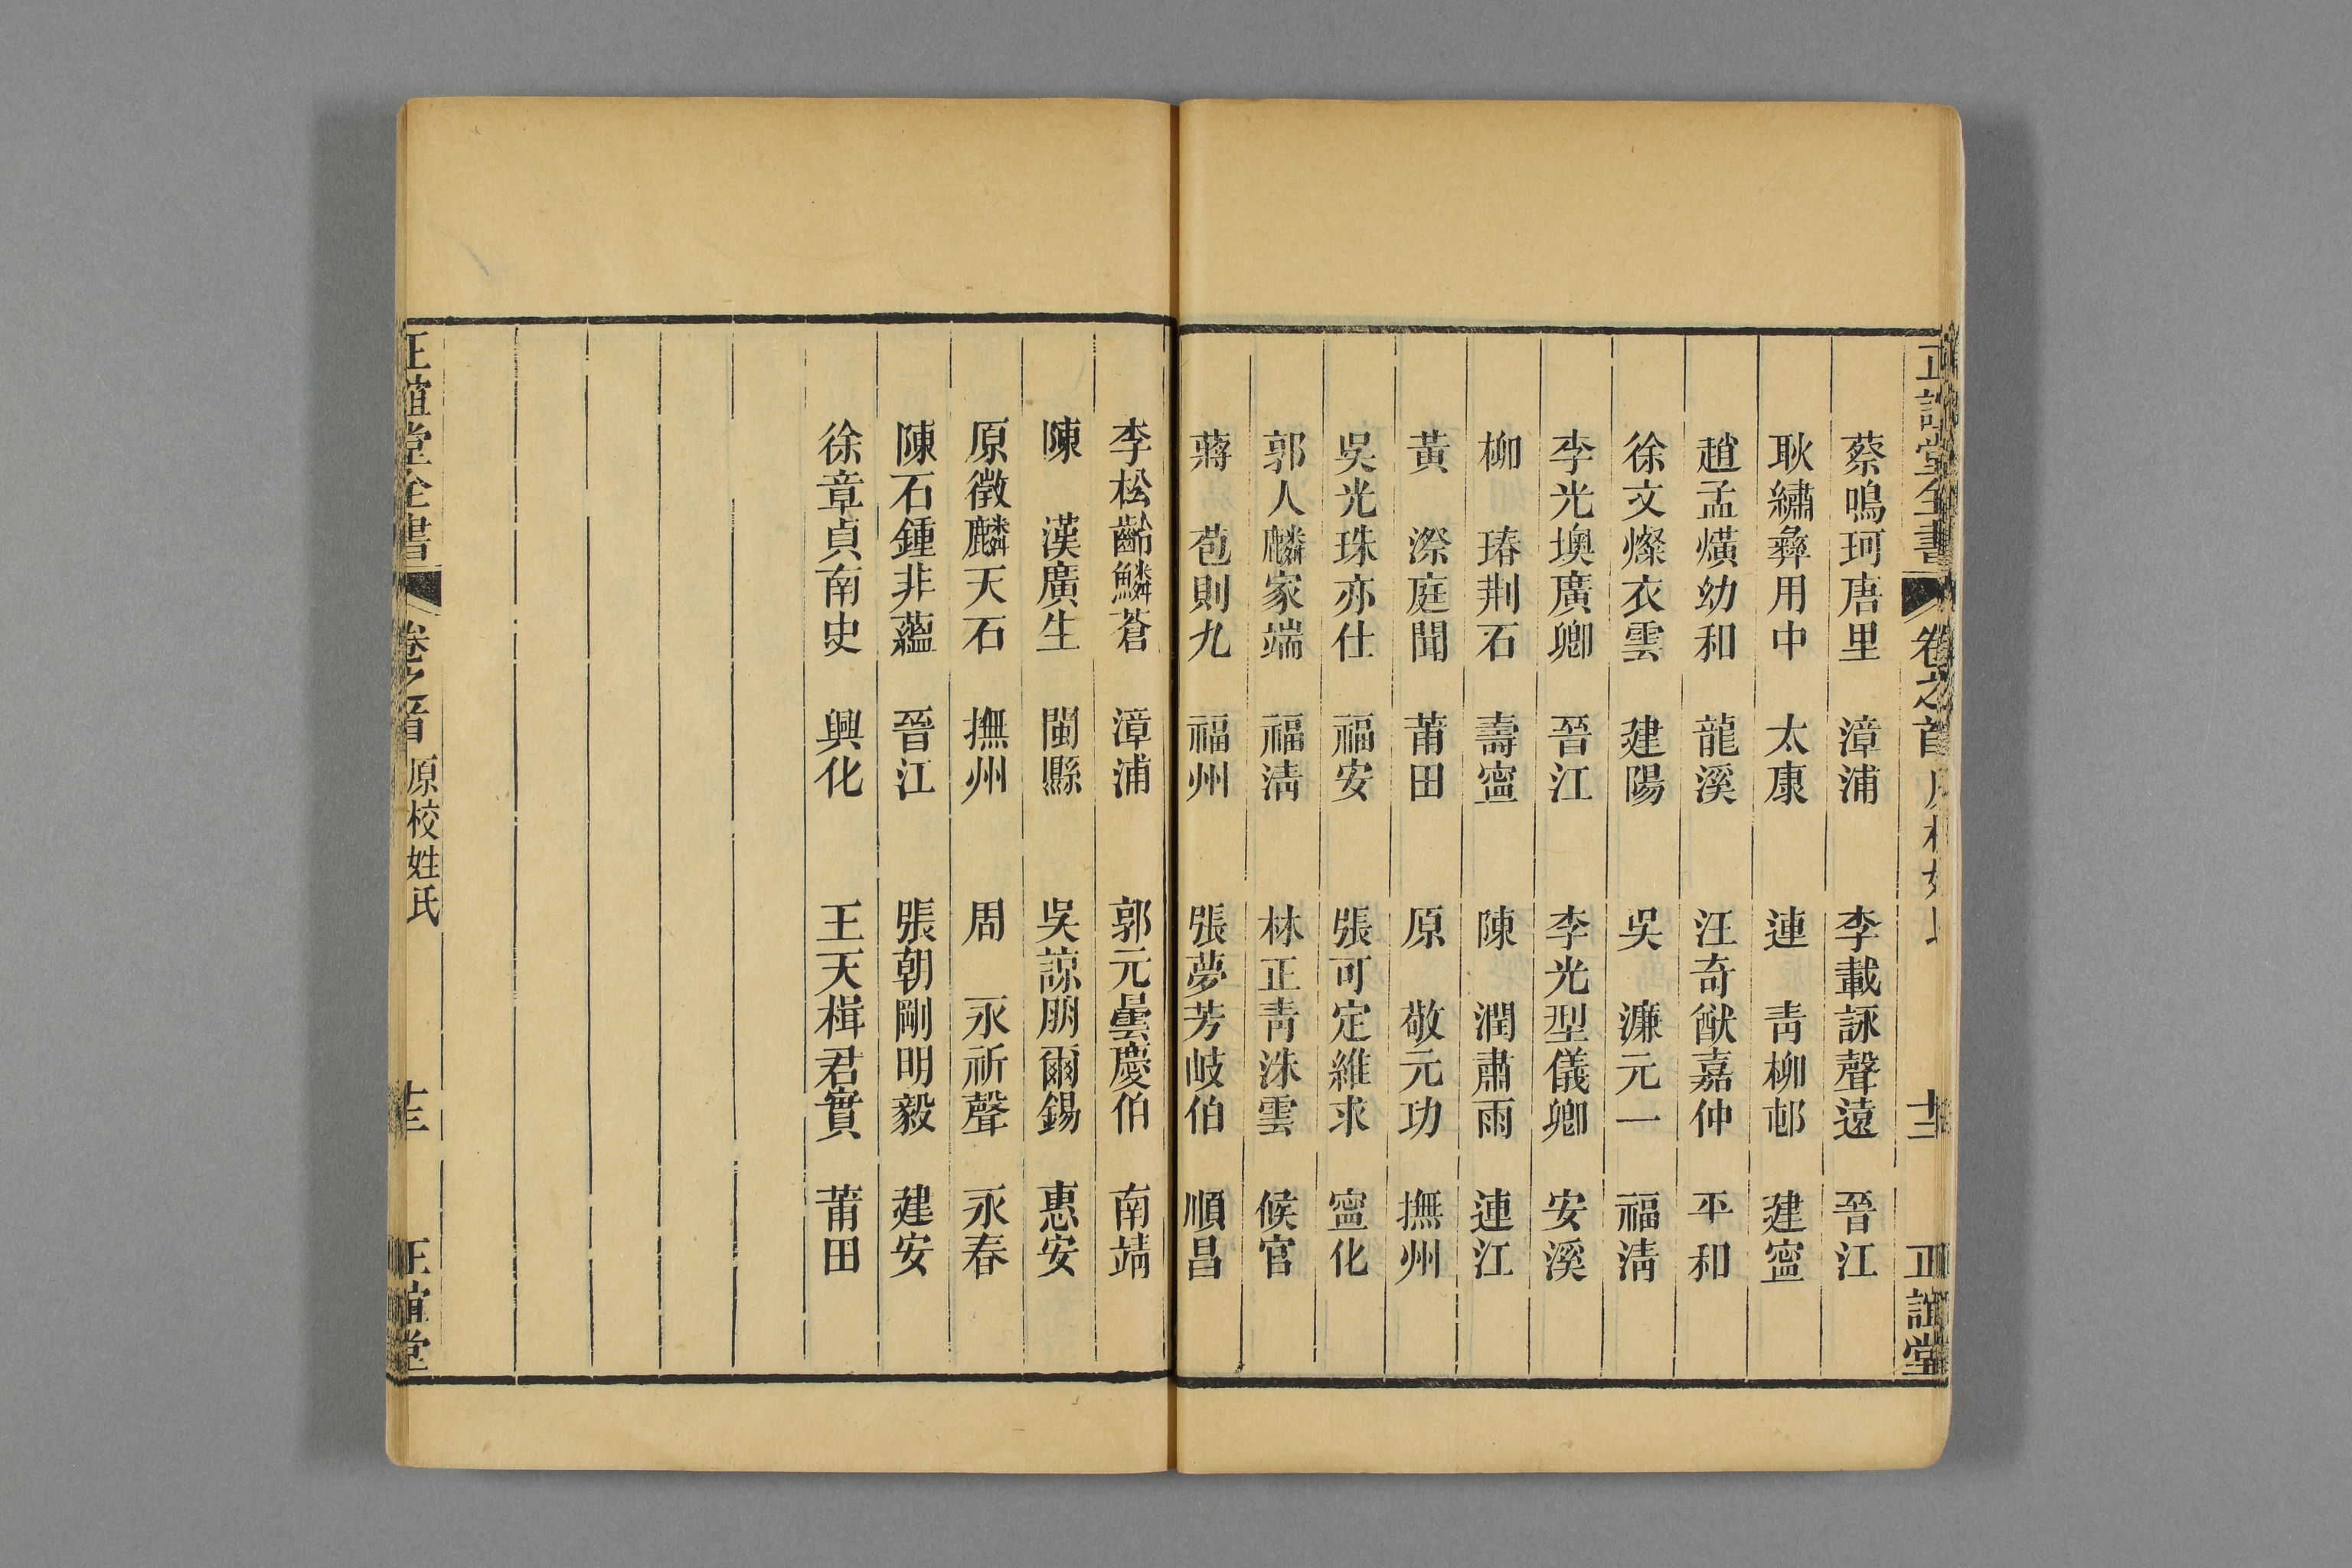 正誼堂全書 卷之首 十二 正誼堂
蔡鳴珂唐里 漳浦 李載詠聲遠 晉江
耿繡彝用中 太康 連 靑柳邨 建寧
趙孟熿幼和 龍溪 汪奇猷嘉仲 平和
徐文燦衣雲 建陽 吳 濂元一 福淸
李光墺廣卿 晉江 李光型儀卿 安溪
柳 瑃荆石 壽寧 陳 潤肅雨 連江
黃 漈庭聞 莆田 原 敬元功 撫州
吳光珠亦仕 福安 張可定維求 寧化
郭人麟家端 福淸 林正靑洙雲 候官
蔣 苞則九 福州 張夢芳岐伯 順昌
李松齡鱗蒼 漳浦 郭元曇慶伯 南靖
陳 漢廣生 閩縣 吳諒朋爾錫 惠安
原徵麟天石 撫州 周 永祈聲 永春
陳石鍾非蘊 晉江 張朝剛明毅 建安
徐章貞南史 興化 王天楫君實 莆田
正誼堂全書 卷之首 原校姓氏 正誼堂